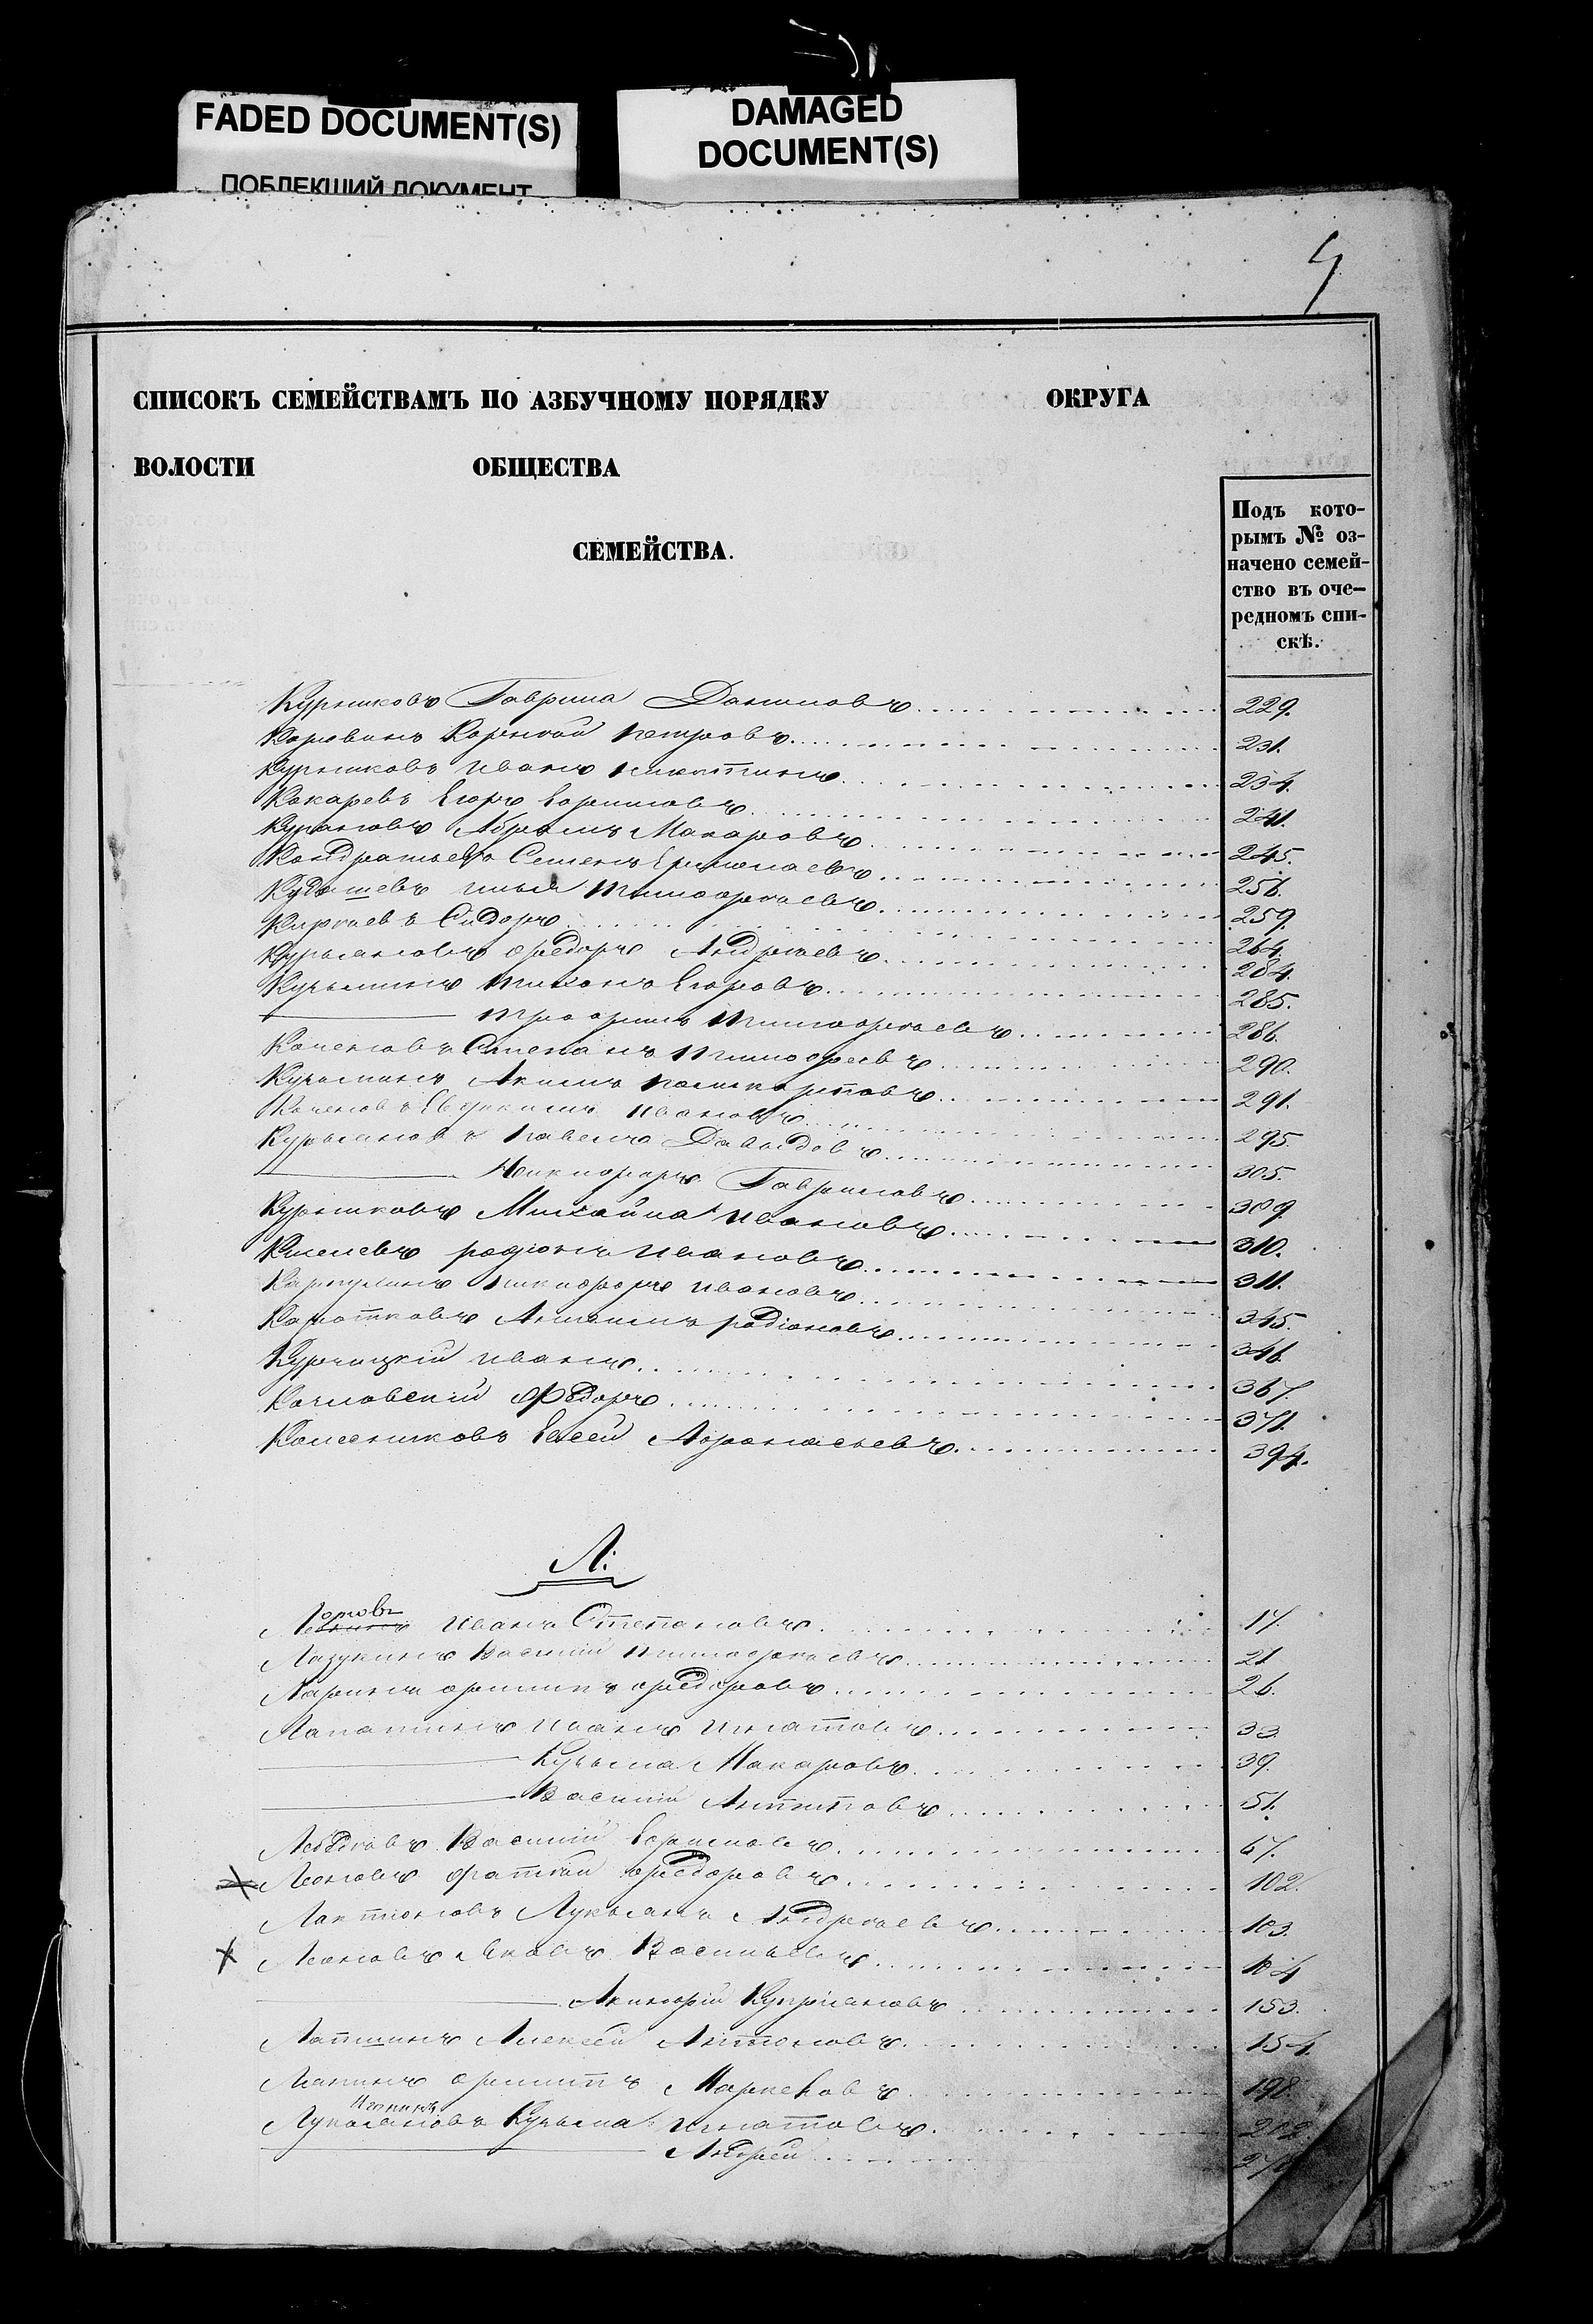 FADED DOCUMENT(S)
ПОБЛЕКШИЙ ДОКУМЕНТ
DAMAGED
DOCUMENT(S)
СПИСОКЪ СЕМЕЙСТВАМЪ ПО АЗБУЧНОМУ ПОРЯДКУ ОКРУГА
ВОЛОСТИ ОБЩЕСТВА
СЕМЕЙСТВА.
Подъ кото-
рымъ № оз-
начено семей-
ство въ оче-
редномъ спи-
скѣ.
Курышковъ Гаврила Даниловъ 229.
Коровинъ Корнѣй Петровъ 231.
Курышковъ Иванъ Никитинъ 234.
Кокаревъ Егоръ Ефимовъ 241.
Абрамъ Макаровъ 245.
Кондратьевъ Семенъ Ермолаевъ 256.
Кудашевъ Илья Тимофѣевъ 259.
Киргаевъ Сидоръ 264.
Курьяновъ Федоръ Андрѣевъ 284.
Кузьминъ Тихонъ Егоровъ 285.
Трофимъ Тимофѣевъ 286.
Степанъ Тимофеевъ 290.
Кузьминъ Акимъ Поликарповъ 291.
Евдокимъ Ивановъ 295.
Курьяновъ Павелъ Давыдовъ 305.
Никифоръ Гавриловъ 309.
Курышковъ Михайла Ивановъ 310.
Киселевъ Родіонъ Ивановъ 311.
Карпухинъ Никифоръ Ивановъ 345.
Коротковъ Родіоновъ 346.
Иванъ 367.
Козловский Федоръ 371.
Колесниковъ Евсей Афонасьевъ 394.
Л.
Иванъ Степановъ 17.
Лазукинъ Василий Тимофѣевъ 21
Ларинъ Филипъ Федоровъ 26.
Лапатинъ Иванъ Игнатовъ 33.
Кузьма Макаровъ 39.
Василий Антиповъ 51.
Лебедковъ Василий Ефимовъ 67.
Леоновъ Фатѣй Федоровъ 102.
Лактіоновъ Лукьянъ Андрѣевъ 103.
Леоновъ Яковъ Васильевъ 104
Акинфій Купріяновъ 153.
Лапшинъ Алексей Антоновъ 154.
Филипъ 198.
Лукьяновъ Кузьма Игнатовъ 202.
Андрей